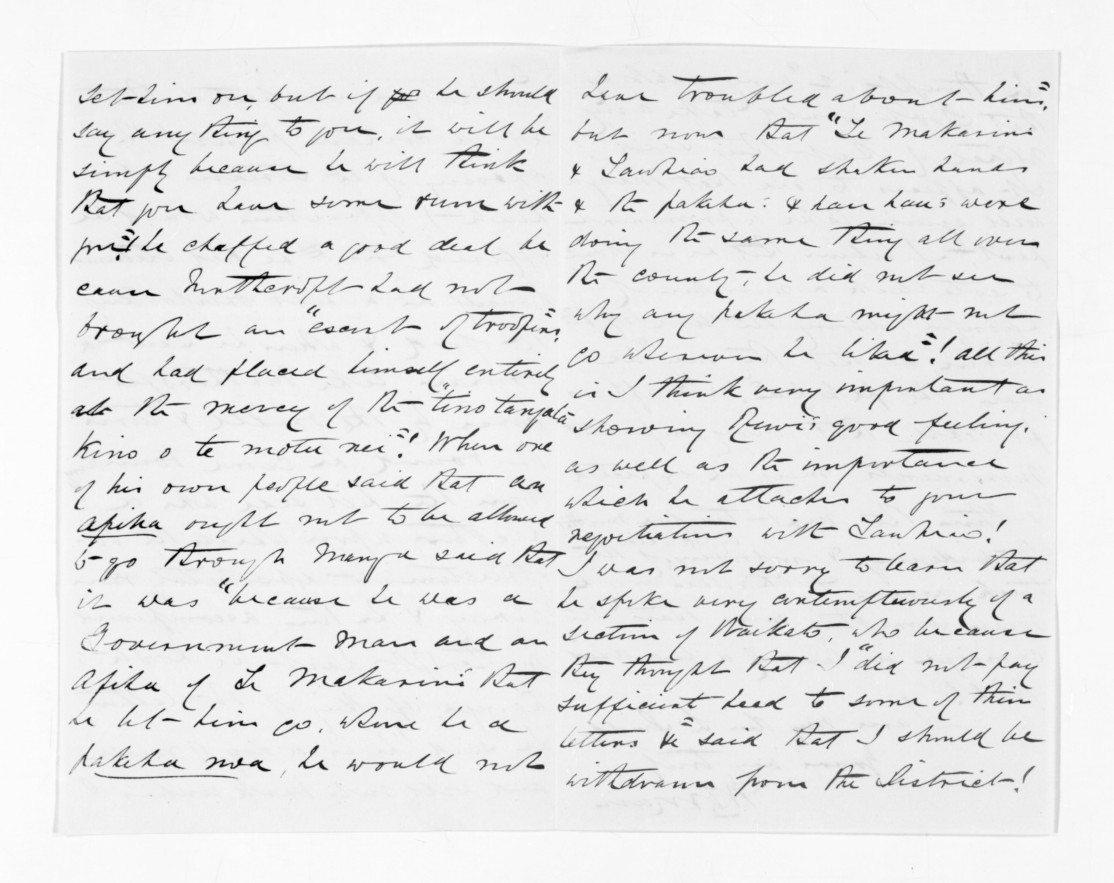 set him on, but if he should
say any thing to you, it will be
simply because he will think
that you have some rum with
you"! he chaffed a good deal be
cause had not
brought an "escort of troopers"
and had placed himself entirely
at the mercy of the "tino tangata
kino o te motu nei"! When one
of his own people said that an
apiha ought not to be allowed
to go through Manga said that
it was "because he was a
Government man and an
Apiha of Te Makarini's that
he let him go, were he a
pakeha noa, he would not
have troubled about him",
but now that "Te Makarini
& Tawhiao had shaken hands
& the pakeha: & hau haus were
doing the same thing all over
the country, he did not see
why any pakeha might not
go wherever he liked"! all this
is I think very important as
showing Rewi's good feeling.
as well as the importance
which he attaches to your
negotiations with Tawhiao!
I was not sorry to learn that
he spoke very contemptuously of a
section of Waikato, who because
they thought that I "did not pay
sufficient heed to some of their
letters &c" said that I should be
withdrawn from the District!